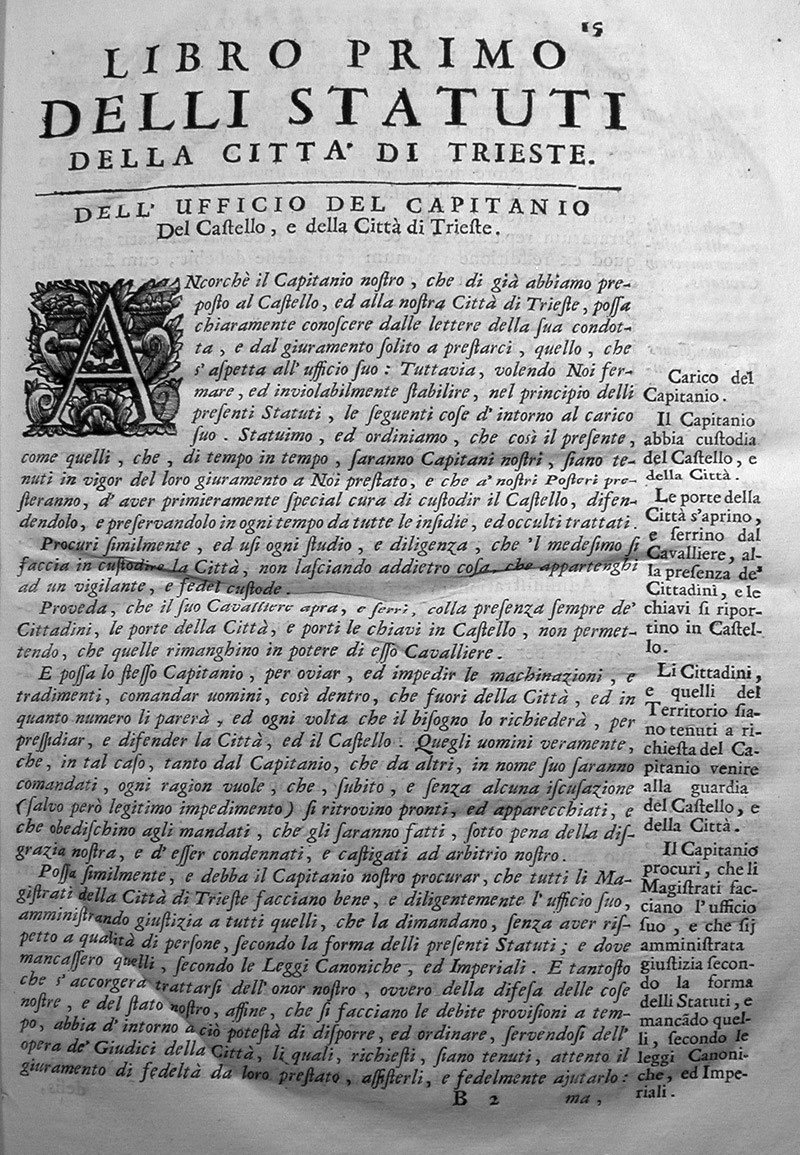 15
LIBRO PRIMO
DELLI STATUTI
DELLA CITTA' DI TRIESTE.
DELL' UFFICIO DEL CAPITANIO
Del Caſtello, e della Città di Trieſte.
ANcorchè il Capitanio noſtro, che di già abbiamo pre-
poſto al Caſtello, ed alla noſtra Città di Trieſte, poſſa
chiaramente conoſcere dalle lettere della ſua condot-
ta, e dal giuramento ſolito a preſtarci, quello, che
s' aſpetta all' ufficio ſuo: Tuttavia, volendo Noi fer-
mare, ed inviolabilmente ſtabilire, nel principio delli
preſenti Statuti, le ſeguenti coſe d' intorno al carico
ſuo. Statuimo, ed ordiniamo, che così il preſente,
come quelli, che, di tempo in tempo, ſaranno Capitani noſtri, ſiano te-
nuti in vigor del loro giuramento a Noi preſtato, e che a' noſtri Poſteri pre-
ſteranno, d' aver primieramente ſpecial cura di cuſtodir il Caſtello, difen-
dendolo, e preſervandolo in ogni tempo da tutte le inſidie, ed occulti trattati.
Procuri ſimilmente, ed uſi ogni ſtudio, e diligenza, che 'l medeſimo ſi
faccia in cuſtodire la Città, non laſciando addietro coſa, che appartenghi
ad un vigilante, e fedel cuſtode.
Proveda, che il ſuo Cavalliere apra, e ſerri, colla preſenza ſempre de'
Cittadini, le porte della Città, e porti le chiavi in Caſtello, non permet-
tendo, che quelle rimanghino in potere di eſſo Cavalliere.
E poſſa lo ſteſſo Capitanio, per oviar, ed impedir le machinazioni, e
tradimenti, comandar uomini, così dentro, che fuori della Città, ed in
quanto numero li parerà, ed ogni volta che il biſogno lo richiederà, per
preſſidiar, e difender la Città, ed il Caſtello. Quegli uomini veramente,
che, in tal caſo, tanto dal Capitanio, che da altri, in nome ſuo ſaranno
comandati, ogni ragion vuole, che, ſubito, e ſenza alcuna iſcuſazione
(ſalvo però legitimo impedimento) ſi ritrovino pronti, ed apparecchiati, e
che obediſchino agli mandati, che gli ſaranno fatti, ſotto pena della diſ-
grazia noſtra, e d' eſſer condennati, e caſtigati ad arbitrio noſtro.
Poſſa ſimilmente, e debba il Capitanio noſtro procurar, che tutti li Ma-
giſtrati della Città di Trieſte facciano bene, e diligentemente l' ufficio ſuo,
amminiſtrando giuſtizia a tutti quelli, che la dimandano, ſenza aver riſ-
petto a qualità di perſone, ſecondo la forma delli preſenti Statuti; e dove
mancaſſero quelli, ſecondo le Leggi Canoniche, ed Imperiali. E tantoſto
che s' accorgerà trattarſi dell' onor noſtro, ovvero della difeſa delle coſe
noſtre, e del ſtato noſtro, affine, che ſi facciano le debite proviſioni a tem-
po, abbia d' intorno a ciò poteſtà di diſporre, ed ordinare, ſervendoſi dell'
opera de' Giudici della Città, li quali, richieſti, ſiano tenuti, attento il
giuramento di fedeltà da loro preſtato, aſſiſterli, e fedelmente ajutarlo:
B 2 ma,
Carico del
Capitanio.
Il Capitanio
abbia cuſtodia
del Caſtello, e
della Città.
Le porte della
Città s'aprino,
e ſerrino dal
Cavalliere, al-
la preſenza de'
Cittadini, e le
chiavi ſi ripor-
tino in Caſtel-
lo.
Li Cittadini,
e quelli del
Territorio ſia-
no tenuti a ri-
chieſta del Ca-
pitanio venire
alla guardia
del Caſtello, e
della Città.
Il Capitanio
procuri, che li
Magiſtrati fac-
ciano l'ufficio
ſuo, e che ſij
amminiſtrata
giuſtizia ſecon-
do la forma
delli Statuti, e
mancādo quel-
li, ſecondo le
leggi Canoni-
che, ed Impe-
riali.